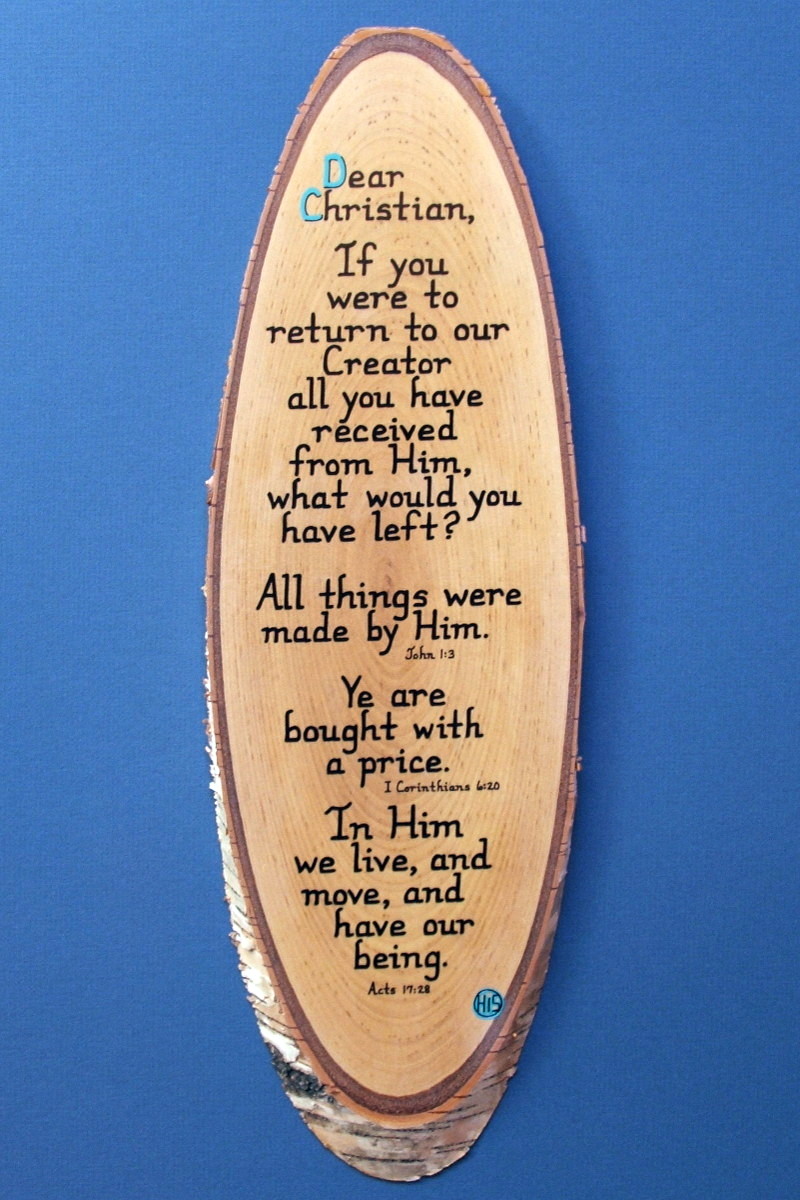 Dear
Christian,
If you
were to
return to our
Creator
all you have
received
from Him,
what would you
have left?
All things were
made by Him.
John 1:3
Ye are
bought with
a price.
I Corinthians 6:20
In Him
we live, and
move, and
have our
being.
Acts 17:28
HIS